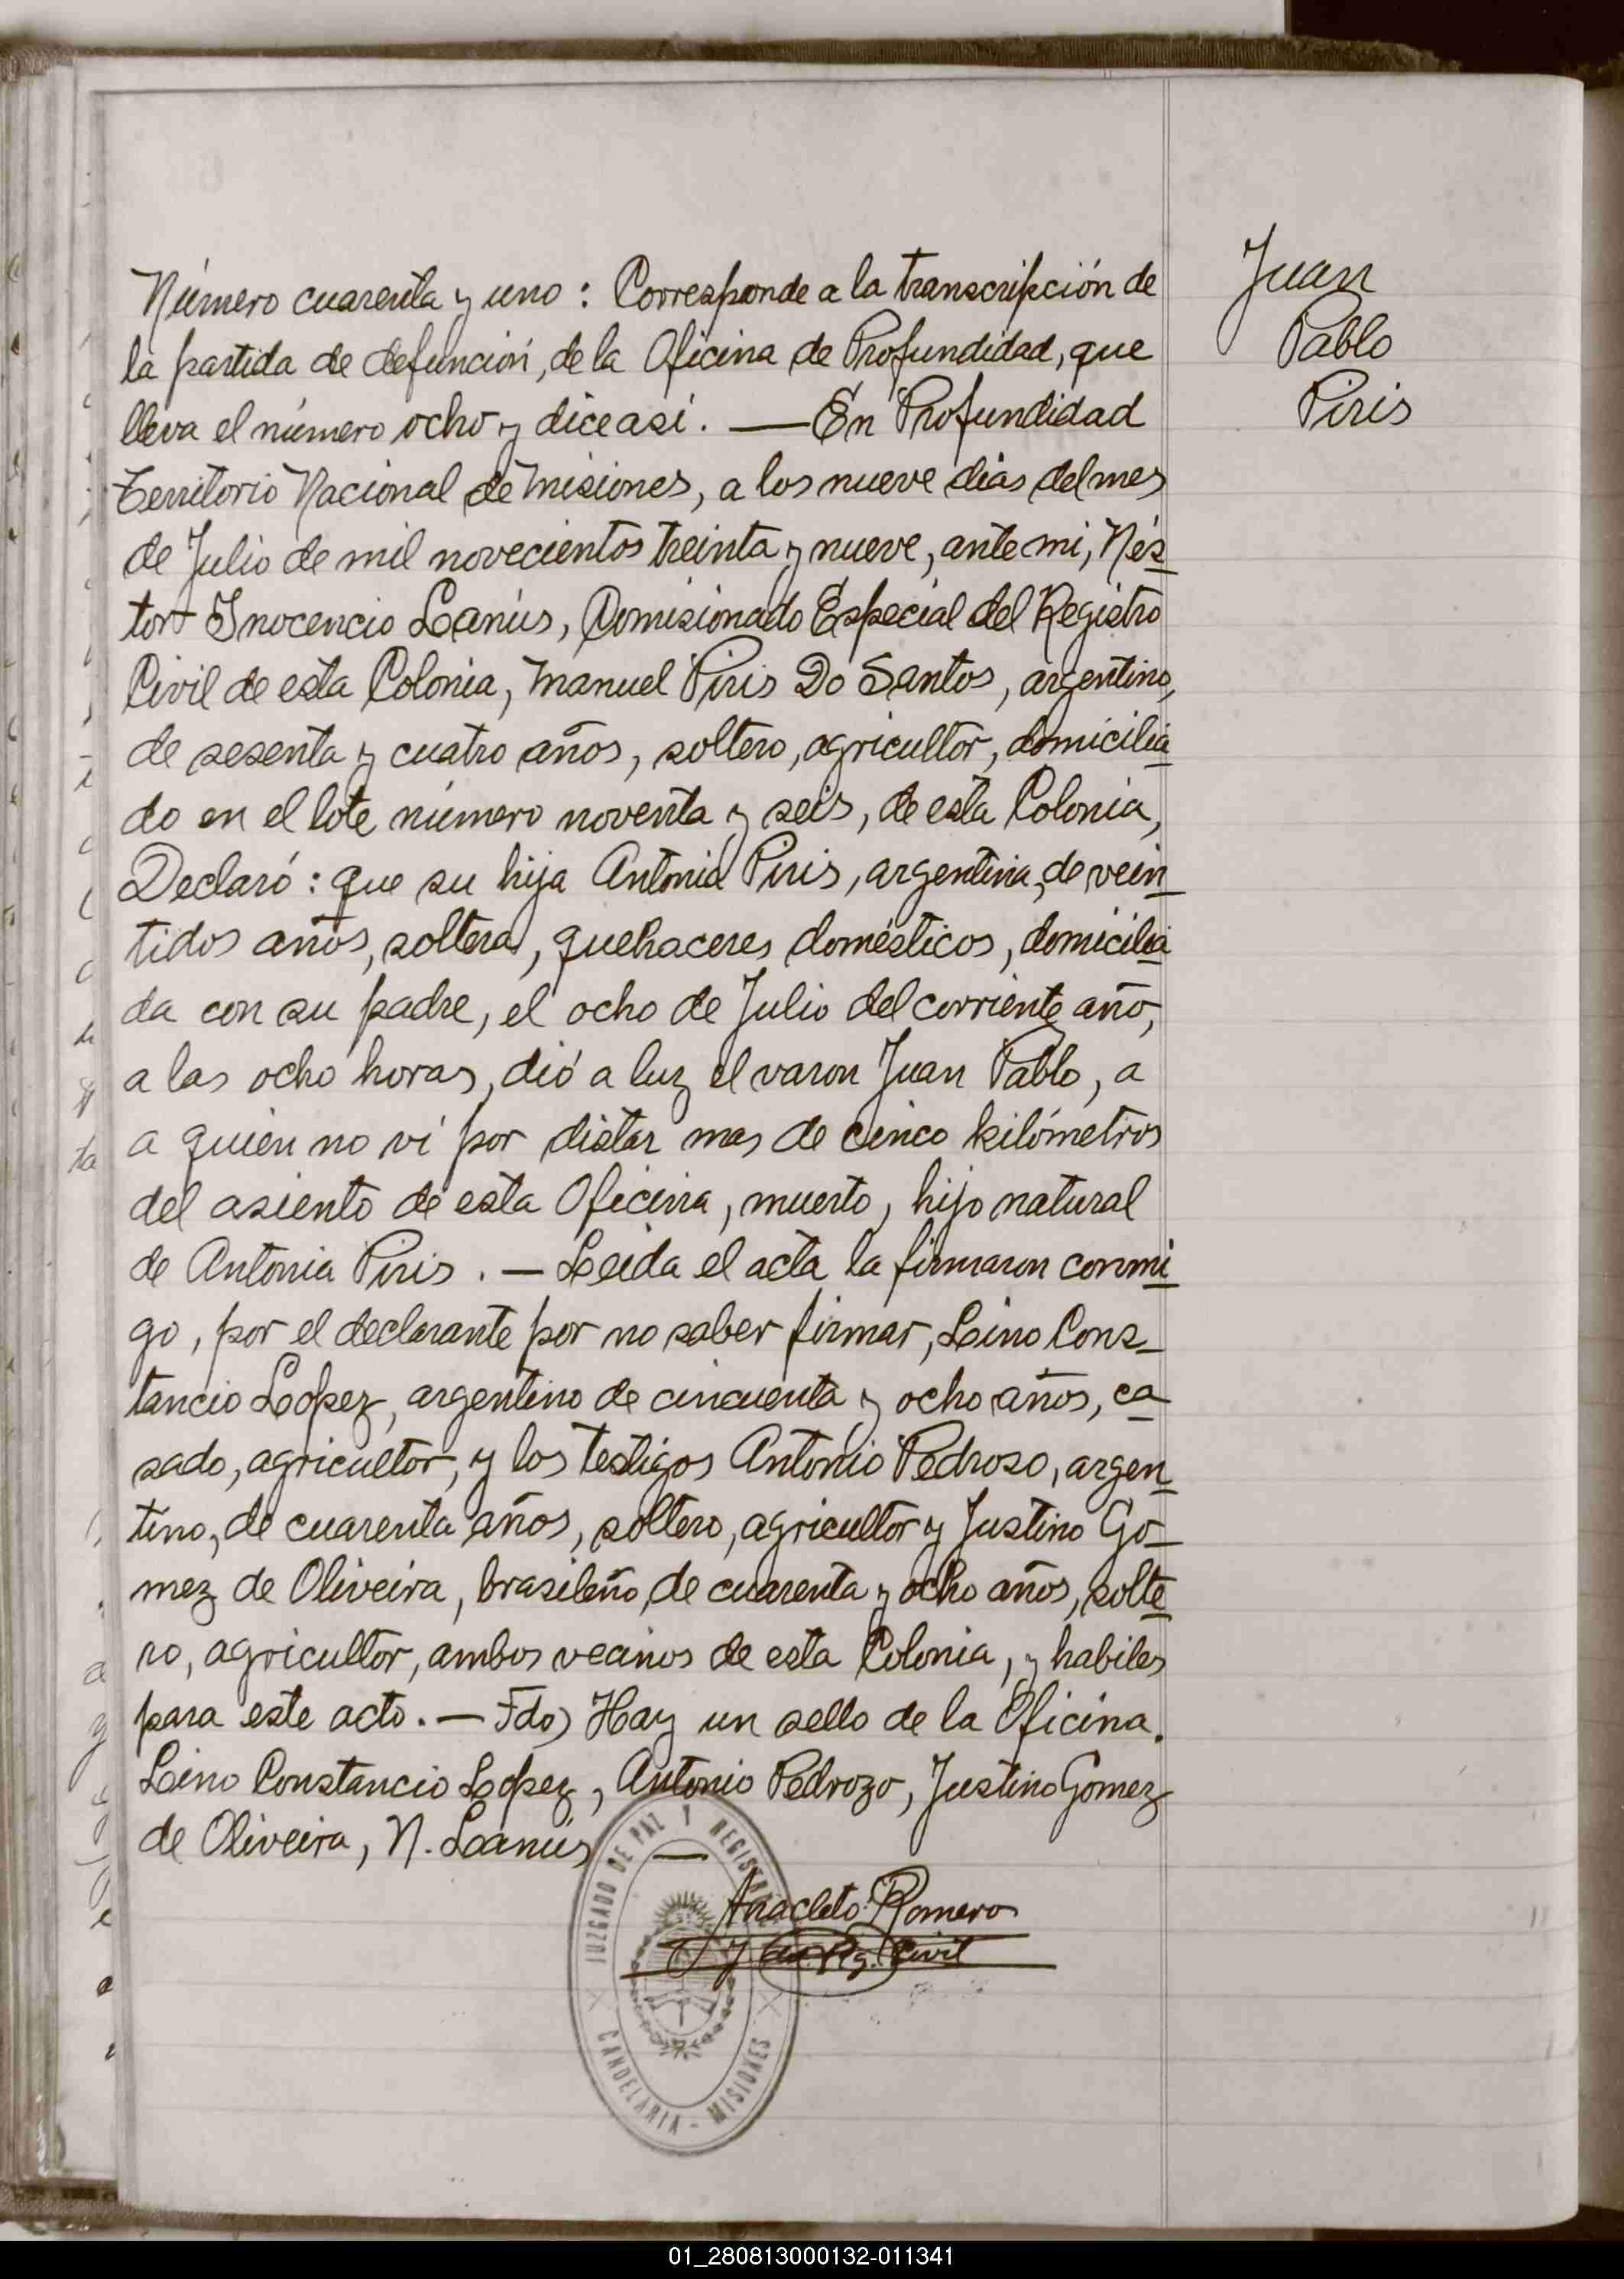 Juan
Pablo
Piris
Número cuarenta y uno : Corresponde a la transcripción de
la partida de defunción, de la Oficina de Profundidad, que
lleva el número ocho y dice asi. — En Profundidad
Territorio Nacional de Misiones, a los nueve dias del mes
de Julio de mil novecientos treinta y nueve, ante mi, Nés-
tor Inocencio Lanús, Comisionado Especial del Registro
Civil de esta Colonia, Manuel Piris Do Santos, argentino,
de sesenta y cuatro años, soltero, agricultor, domicilia
do en el lote número noventa y seis, de esta Colonia,
Declaró : que su hija Antonia Piris, argentina, de vein
tidos años, soltera, quehaceres domésticos, domicilia
da con su padre, el ocho de Julio del corriente año,
a las ocho horas, dió a luz el varon Juan Pablo, a
a quien no ví por distar mas de cinco kilómetros
del asiento de esta Oficina, muerto, hijo natural
de Antonia Piris . — Leida el acta la firmaron conmi
go, por el declarante por no saber firmar, Lino Cons-
tancio Lopez, argentino de cincuenta y ocho años, ca
sado, agricultor, y los testigos Antonio Pedroso, argen
tino, de cuarenta años, soltero, agricultor y Justino Go-
mez de Oliveira, brasileño, de cuarenta y ocho años, solte
ro, agricultor, ambos vecinos de esta Colonia, y habiles
para este acto. — Fdo) Hay un sello de la Oficina.
Lino Constancio Lopez, Antonio Pedrozo, Justino Gomez
de Oliveira, N. Lanús —
JUZGADO DE PAZ Y REGISTRO
Anacleto Romero
Civil
CANDELARIA - MISIONES
01_280813000132-011341